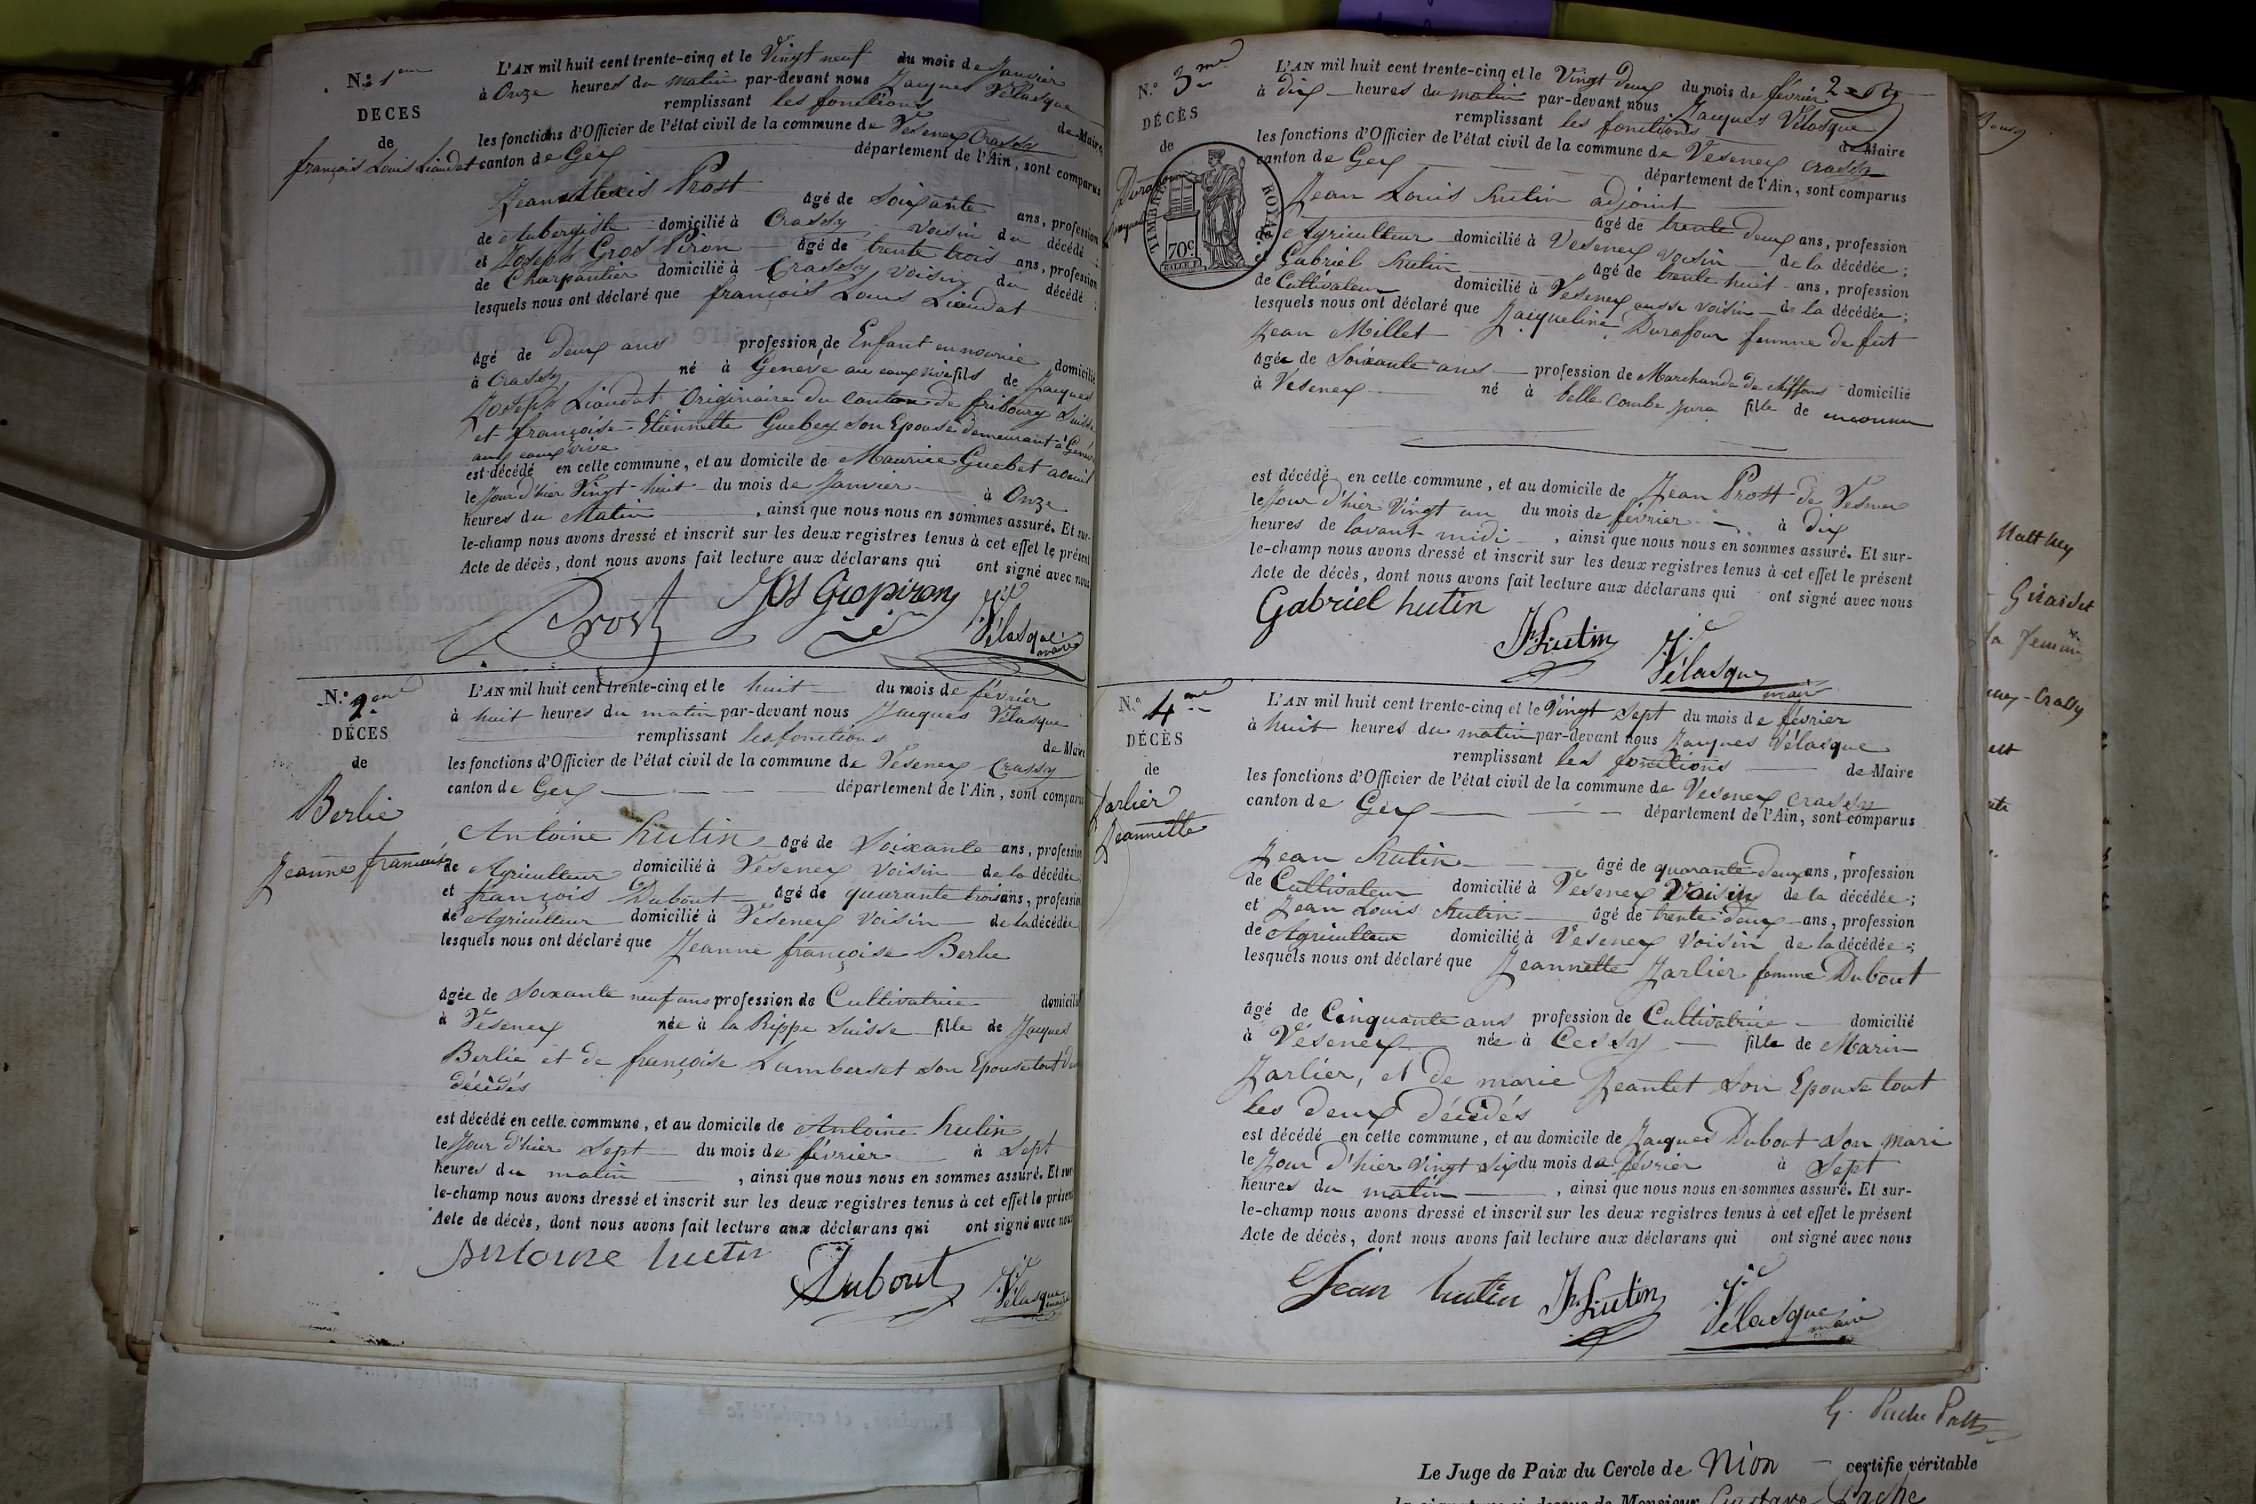 N.º 1er
DÉCÈS
de
françois Louis Liaudat
L'AN mil huit cent trente-cinq et le Vingt neuf du mois de Janvier
à Onze heures du matin par-devant nous Jacques Vélasque
remplissant les fonctions de Maire
les fonctions d'Officier de l'état civil de la commune de Vesenex Crassy
canton de Gex département de l'Ain, sont comparus
Jean Alexis Prost âgé de Soixante ans, profession
de Aubergiste domicilié à Crassy voisin du décédé ;
et Joseph Gros Piron âgé de trente trois ans, profession
de Charpantier domicilié à Crassy voisin du décédé ;
lesquels nous ont déclaré que françois Louis Liaudat
âgé de deux ans profession de Enfant en nourice domicilié
à Crassy né à Genève au eaux vive fils de Jacques
Joseph Liaudat Originaire du canton de fribourg Suisse
et françoise Etiennette Guebey son Epouse demeurant à Genève
aux eaux vive
est décédé en cette commune, et au domicile de Maurice Guebet
le Jour d'hier Vingt huit du mois de Janvier à Onze
heures du Matin , ainsi que nous nous en sommes assuré. Et sur-
le-champ nous avons dressé et inscrit sur les deux registres tenus à cet effet le présent
Acte de décès, dont nous avons fait lecture aux déclarans qui ont signé avec nous
Prost Jos Gropiron Jes Vélasque
maire
N.º 2eme
DÉCÈS
de
Berlie
Jeanne francoise
L'AN mil huit cent trente-cinq et le huit du mois de février
à huit heures du matin par-devant nous Jacques Vélasque
remplissant les fonctions de Maire
les fonctions d'Officier de l'état civil de la commune de Vesenex Crassy
canton de Gex département de l'Ain, sont comparus
Antoine hutin âgé de Soixante ans, profession
de Agriculteur domicilié à Vesenex voisin de la décédée
et françois Dubout âgé de quarante trois ans, profession
de Agriculteur domicilié à Vesenex voisin de la décédée
lesquels nous ont déclaré que Jeanne françoise Berlie
âgée de Soixante neuf ans profession de Cultivatrice domicilié
à Vesenex née à la Rippe Suisse fille de Jacques
Berlie et de françoise Lamberset son Epouse tout
décédés
est décédé en cette commune, et au domicile de Antoine hutin
le Jour d'hier Sept du mois de février à Sept
heures du matin , ainsi que nous nous en sommes assuré. Et sur
le-champ nous avons dressé et inscrit sur les deux registres tenus à cet effet le présent
Acte de décès, dont nous avons fait lecture aux déclarans qui ont signé avec nous
Antoine hutin Dubout Jes Vélasque
maire
N.º 3me
DÉCÈS
de
Durafour
TIMBRE ROYAL
70c
L'AN mil huit cent trente-cinq et le Vingt deux du mois de février
à dix heures du matin par-devant nous Jacques Vélasque
remplissant les fonctions de Maire
les fonctions d'Officier de l'état civil de la commune de Vesenex crassy
canton de Gex département de l'Ain, sont comparus
Jean Louis hutin adjoint âgé de trente deux ans, profession
de Agriculteur domicilié à Vesenex voisin de la décédée ;
et Gabriel hutin âgé de trente huit ans, profession
de Cultivateur domicilié à Vesenex ausse voisin de la décédée ;
lesquels nous ont déclaré que Jacqueline Durafour femme de feût
Jean Millet
âgée de Soixante ans profession de Marchande de chiffons domicilié
à Vesenex né à belle combe jura fille de inconnu
est décédé en cette commune, et au domicile de Jean Prost de Vesenex
le Jour d'hier Vingt un du mois de février à dix
heures de lavant midi , ainsi que nous nous en sommes assuré. Et sur-
le-champ nous avons dressé et inscrit sur les deux registres tenus à cet effet le présent
Acte de décès, dont nous avons fait lecture aux déclarans qui ont signé avec nous
Gabriel hutin JL hutin Jes Vélasque
maire
N.º 4me
DÉCÈS
de
Jarlier
Jeannette
L'AN mil huit cent trente-cinq et le Vingt sept du mois de février
à huit heures du matin par-devant nous Jacques Vélasque
remplissant les fonctions de Maire
les fonctions d'Officier de l'état civil de la commune de Vesenex crassy
canton de Gex département de l'Ain, sont comparus
Jean hutin âgé de quarante deux ans, profession
de Cultivateur domicilié à Vesenex Voisin de la décédée ;
et Jean Louis hutin âgé de trente deux ans, profession
de Agriculteur domicilié à Vesenex Voisin de la décédée ;
lesquels nous ont déclaré que Jeannette Jarlier femme Dubout
âgé de Cinquante ans profession de Cultivatrice domicilié
à Vésenex née à Cessy fille de Marin
Jarlier, et de marie Jeantet son Epouse tout
les deux décédés
est décédé en cette commune, et au domicile de Jacques Dubout son mari
le Jour d'hier vingt six du mois de février à Sept
heures du matin , ainsi que nous nous en sommes assuré. Et sur-
le-champ nous avons dressé et inscrit sur les deux registres tenus à cet effet le présent
Acte de décès, dont nous avons fait lecture aux déclarans qui ont signé avec nous
Jean hutin JL hutin Jes Vélasque
maire
Matthey
Girardet
Crassy
Le Juge de Paix du Cercle de Nion certifie véritable
la signature ci-dessus de Monsieur Gustave Pache